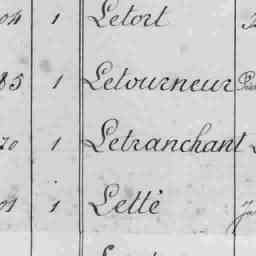 04 1 Letort
85 1 Letourneur
70 1 Letranchant
01 1 Letté